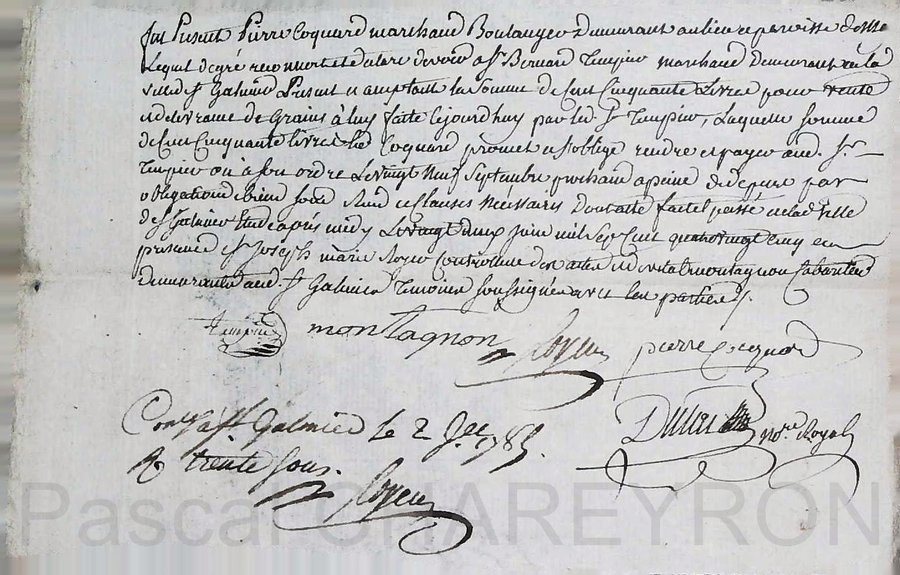 fut Présent Pierre Coquard marchand Boulanger Demeurant au lieu et paroisse de
Lequel de gré reconnoit et declare devoir a Sr Bernard Tempier marchand demeurant en la
ville de St Galmier Présent et acceptant la Somme de Cent Cinquante Livres pour vente
et delivrance de Grains à luy faite cejourdhuy par led. Sr Tempier, Laquelle somme
de Cent Cinquante livres led Coquard promet et soblige rendre et payer aud. Sr
Tempier ou à son ordre Le vingt neuf Septembre prochain a peine de depens par
obligation de biens Soum. Renon. et Clauses Nécéssaires Dont acte fait et passé en lad ville
de St Galmier Etude après midy Le vingt deux juin mil Sept Cent quatrevingt Cinq en
presence de Sr Joseph marie Royer Controlleur des actes et de vital montagnon Cabaretier
demeurants aud. St Galmier Temoins Soussignés avec les parties.
Tempier montagnon Royer pierre Coquard
not.re Royal
Con.lé à St Galmier le 2 1785.
R trente Sous.
Royer
Pascal CHAREYRON